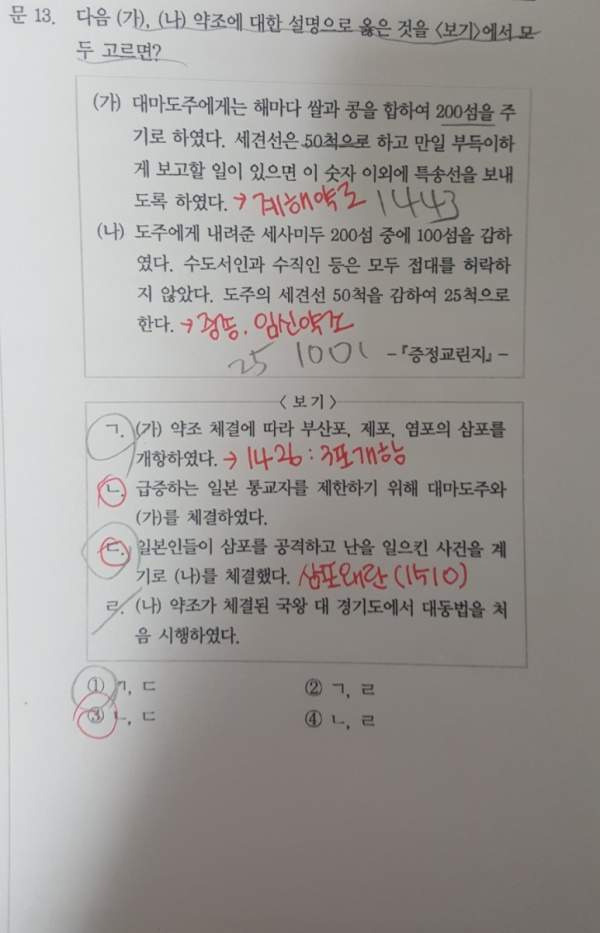 문 13. 다음 (가), (나) 약조에 대한 설명으로 옳은 것을 〈보기〉에서 모
두 고르면?
(가) 대마도주에게는 해마다 쌀과 콩을 합하여 200섬을 주
기로 하였다. 세견선은 50척으로 하고 만일 부득이하
게 보고할 일이 있으면 이 숫자 이외에 특송선을 보내
도록 하였다. → 계해약조 1443
(나) 도주에게 내려준 세사미두 200섬 중에 100섬을 감하
였다. 수도서인과 수직인 등은 모두 접대를 허락하
지 않았다. 도주의 세견선 50척을 감하여 25척으로
한다. → 중종. 임신약조
25 100
-『증정교린지』-
〈 보 기 〉
ㄱ. (가) 약조 체결에 따라 부산포, 제포, 염포의 삼포를
개항하였다. → 1426 : 3포개항
ㄴ. 급증하는 일본 통교자를 제한하기 위해 대마도주와
(가)를 체결하였다.
ㄷ. 일본인들이 삼포를 공격하고 난을 일으킨 사건을 계
기로 (나)를 체결했다. 삼포왜란 (1510)
ㄹ. (나) 약조가 체결된 국왕 대 경기도에서 대동법을 처
음 시행하였다.
① ㄱ, ㄷ ② ㄱ, ㄹ
③ ㄴ, ㄷ ④ ㄴ, ㄹ